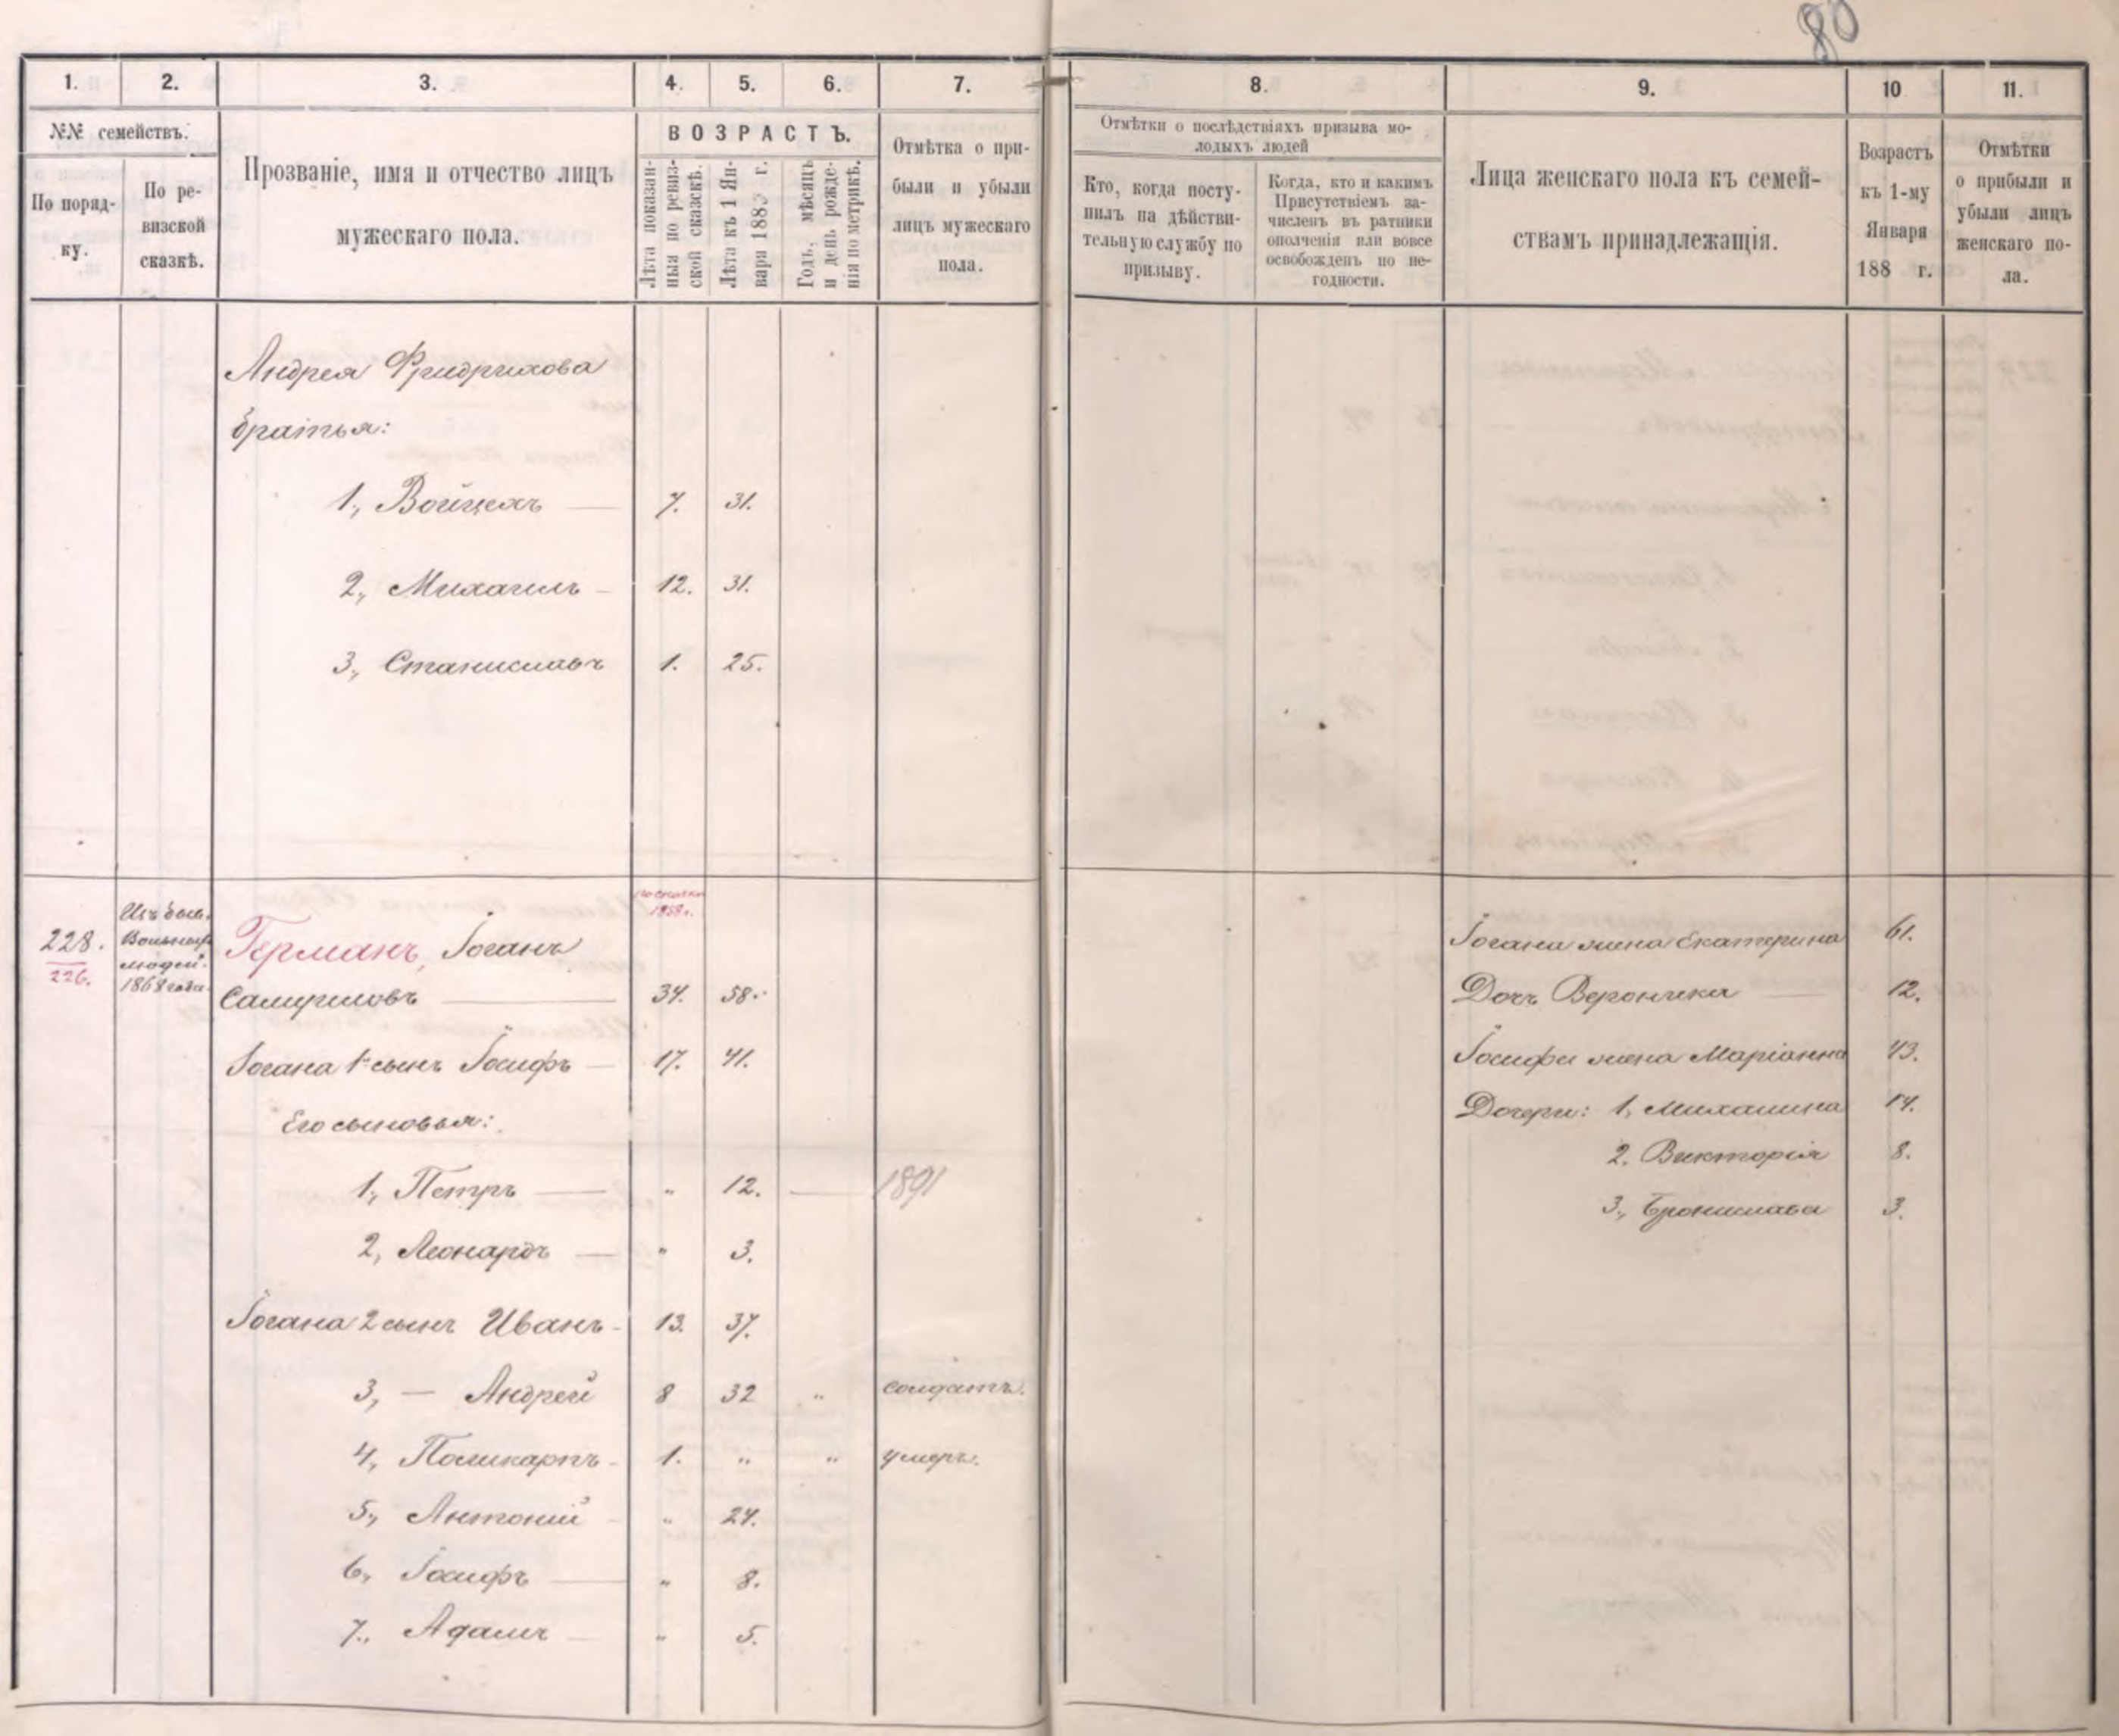 80
1.
2.
3.
4.
5.
6.
7.
8.
9.
10
11.
№№ семействъ.
По поряд-
ку.
По ре-
визской
сказкѣ.
Прозваніе, имя и отчество лицъ
мужескаго пола.
ВОЗРАСТЪ.
Лѣта показан-
ныя по ревиз-
ской сказскѣ.
Лѣта къ 1 Ян-
варя 1883 г.
Годъ, мѣсяцъ
и день рожде-
нія по метрикѣ.
Отмѣтка о при-
были и убыли
лицъ мужескаго
пола.
Отмѣтки о послѣдствіяхъ призыва мо-
лодыхъ людей
Кто, когда посту-
пилъ на дѣйстви-
тельную службу по
призыву.
Когда, кто и какимъ
Присутствіемъ за-
численъ въ ратники
ополченія или вовсе
освобожденъ по не-
годности.
Лица женскаго пола къ семей-
ствамъ принадлежащія.
Возрастъ
къ 1-му
Января
188 г.
Отмѣтки
о прибыли и
убыли лицъ
женскаго по-
ла.
Андрея Фридрихова
братья:
1., Войцехъ — 7. 31.
2., Михаилъ — 12. 31.
3., Станиславъ 1. 25.
228.
226.
Изъ быв.
Вольныхъ
людей.
1868 года.
по сказкѣ
1858 г.
Германъ, Іоганъ
Самуиловъ — 34. 58.
Іогана 1 сынъ Іосифъ — 17. 41.
Его сыновья:
1., Петръ — „ 12. — 1891
2, Леонардъ — „ 3.
Іогана 2 сынъ Иванъ - 13. 37.
3, — Андрей 8 32 „ солдатъ.
4, Поликарпъ - 1. „ „ умеръ.
5., Антоній - „ 24.
6., Іосифъ — „ 8.
7., Адамъ — „ 5.
Іогана жена Екатерина 61.
Дочь Вероника — 12.
Іосифа жена Маріанна 43.
Дочери: 1, Михалина 14.
2. Викторія 8.
3., Бронислава 3.